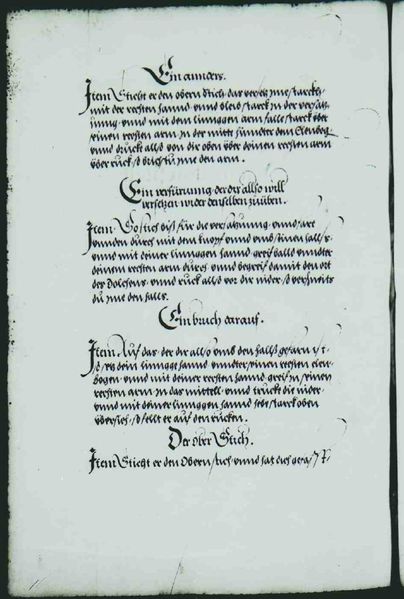 Ein annders.
Item Sticht er den obern stich das versetz jme starckh
mit der rechten hannd vnnd bleib starck jn der versatz
ung vnnd mit dem linnggen arm falle starck vber
einen rechten arm jn der mitt hinnder dem Elenbog
vnnd druck allso von dir oben vber deinen rechten arm
vber ruck so brichstu jme den arm.
Ein verfürung der dir allso will
versetzen wider denselben zuüben.
Item So stich diß für die versatzung vnnd far
vnnden durch mit dem knopf vnnd vmb seinen hallß
vnnd mit deiner linnggen hannd greif balld vnndter
deinen rechten arm durch vnnd begreif damit den ort
des Dolchens vnnd ruck allso vor dir nider so verschneits
du jme den halls.
Ein bruch darauf.
Item Auf das der dir allso vmb den hallß gefarn ist
so setz dein linngge hannd vnndter seinen rechten elen
bogen vnnd mit deiner rechten hannd greif jn seinen
rechten arm jn das mittell vnnd truckt die nider
vnnd mit deiner linnggen hannd hebt starck oben
vbersich so fellt er auf den rucken.
Der ober Stich.
Item Sticht er den Obern stich vnnd hat dich